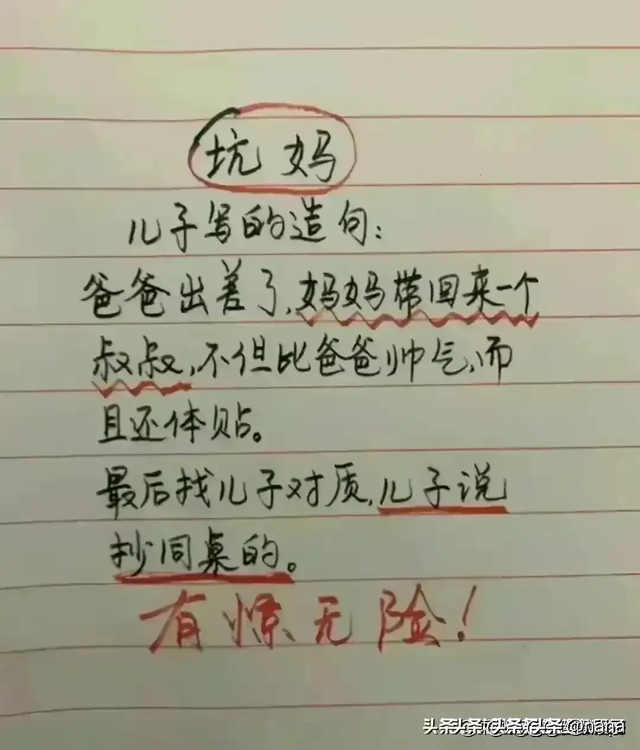 坑妈
儿子写的造句:
爸爸出差了,妈妈带回来一个
叔叔,不但比爸爸帅气,而
且还体贴。
最后找儿子对质,儿子说
抄同桌的。
有惊无险!